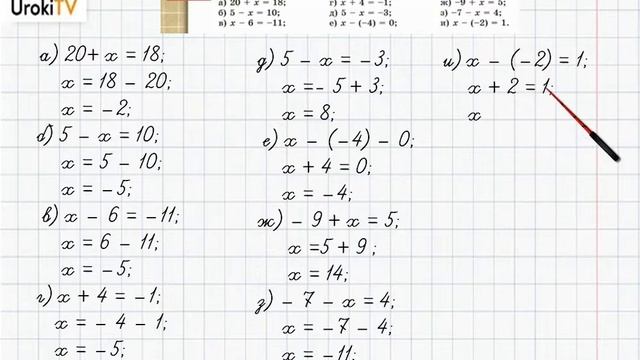 UrokiTV
а) 20 + x = 18; г) x + 4 = −1; ж) −9 + x = 5;
б) 5 − x = 10; д) 5 − x = −3; з) −7 − x = 4;
в) x − 6 = −11; е) x − (−4) = 0; и) x − (−2) = 1.
а) 20+ x = 18;
x = 18 − 20;
x = −2;
б) 5 − x = 10;
x = 5 − 10;
x = −5;
в) x − 6 = −11;
x = 6 − 11;
x = −5;
г) x + 4 = −1;
x = − 4 − 1;
x = −5;
д) 5 − x = −3;
x =− 5 + 3;
x = 8;
е) x − (−4) − 0;
x + 4 = 0;
x = −4;
ж) − 9 + x = 5;
x =5 + 9 ;
x = 14;
з) − 7 − x = 4;
x = −7 − 4;
x = −11;
и) x − (−2) = 1;
x + 2 = 1;
x